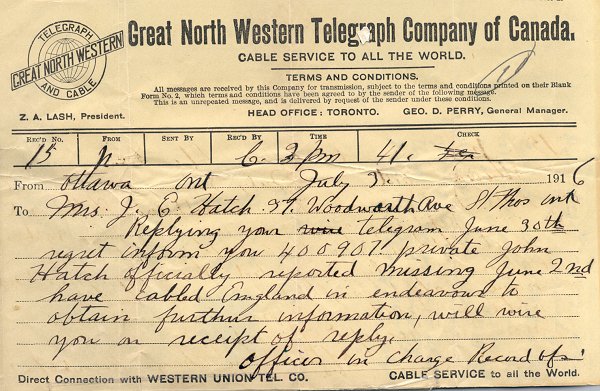 TELEGRAPH
GREAT NORTH WESTERN
AND CABLE
Great North Western Telegraph Company of Canada.
CABLE SERVICE TO ALL THE WORLD.
TERMS AND CONDITIONS.
All messages are received by this Company for transmission, subject to the terms and conditions printed on their Blank
Form No. 2, which terms and conditions have been agreed to by the sender of the following message.
This is an unrepeated message, and is delivered by request of the sender under these conditions.
Z. A. LASH, President.
HEAD OFFICE: TORONTO.
GEO. D. PERRY, General Manager.
REC'D NO. FROM SENT BY REC'D BY TIME CHECK
15 C. 2 pm 41.
From Ottawa Ont July 3. 1916
To Mrs. J. E. Hatch. 37. Woodworth Ave St Thos Ont
Replying your wire telegram June 30th
regret inform you 400907. private John
Hatch officially reported missing June 2nd
have cabled England in endeavour to
obtain further information, will wire
you on receipt of reply.
Officer in Charge Record of
Direct Connection with WESTERN UNION TEL. CO.
CABLE SERVICE to all the World.